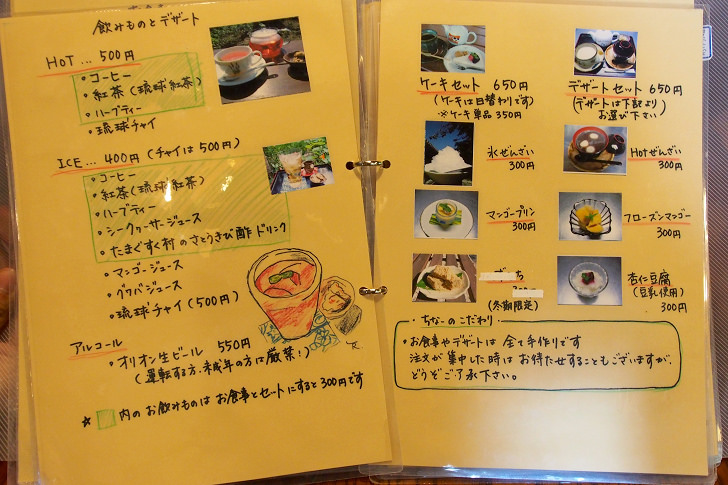 飲みものとデザート
HOT … 500円
・コーヒー
・紅茶(琉球紅茶)
・ハーブティー
・琉球チャイ
ICE … 400円(チャイは500円)
・コーヒー
・紅茶(琉球紅茶)
・ハーブティー
・シークヮーサージュース
・たまぐすく村のさとうきび酢ドリンク
・マンゴージュース
・グァバジュース
・琉球チャイ(500円)
アルコール
・オリオン生ビール 550円
(運転する方、未成年の方は厳禁!)
☆ 内のお飲みものはお食事とセットにすると300円です
ケーキセット 650円
(ケーキは日替わりです)
※ケーキ単品 350円
デザートセット 650円
(デザートは下記より
お選び下さい)
氷ぜんざい
300円
Hotぜんざい
300円
マンゴープリン
300円
フローズンマンゴー
300円
(冬期限定)
杏仁豆腐
(豆乳使用)
300円
・ちなーのこだわり・
・お食事やデザートは全て手作りです
注文が集中した時はお待たせすることもございますが、
どうぞご了承下さい。